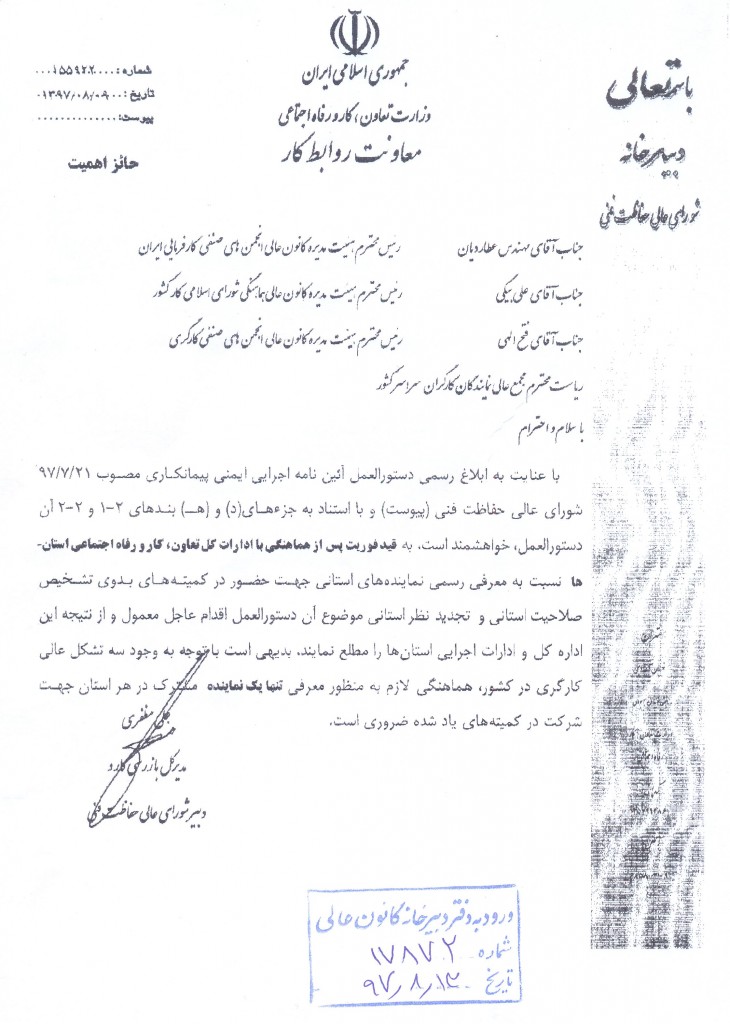 باسمه‌تعالی
دبیرخانه
شورای عالی حفاظت فنی
جمهوری اسلامی ایران
وزارت تعاون، کار و رفاه اجتماعی
معاونت روابط کار
شماره: ۱۵۵۹۲۲
تاریخ: ۱۳۹۷/۰۸/۰۹
پیوست:
حائز اهمیت
جناب آقای مهندس عطاردیان رئیس محترم هیئت مدیره کانون عالی انجمن های صنفی کارفرمایی ایران
جناب آقای علی بیگی رئیس محترم هیئت مدیره کانون عالی هماهنگی شورای اسلامی کار کشور
جناب آقای فتح الهی رئیس محترم هیئت مدیره کانون عالی انجمن های صنفی کارگری
ریاست محترم مجمع عالی نمایندگان کارگران سراسر کشور
با سلام و احترام
با عنایت به ابلاغ رسمی دستورالعمل آئین نامه اجرایی ایمنی پیمانکاری مصوب ۹۷/۷/۲۱
شورای عالی حفاظت فنی (پیوست) و با استناد به جزءهای(د) و (هـ) بندهای ۲-۱ و ۲-۲ آن
دستورالعمل، خواهشمند است، به قید فوریت پس از هماهنگی با ادارات کل تعاون، کار و رفاه اجتماعی استان-
ها نسبت به معرفی رسمی نماینده‌های استانی جهت حضور در کمیته‌های بدوی تشخیص
صلاحیت استانی و تجدید نظر استانی موضوع آن دستورالعمل اقدام عاجل معمول و از نتیجه این
اداره کل و ادارات اجرایی استان‌ها را مطلع نمایند. بدیهی است با توجه به وجود سه تشکل عالی
کارگری در کشور، هماهنگی لازم به منظور معرفی تنها یک نماینده مشترک در هر استان جهت
شرکت در کمیته‌های یاد شده ضروری است.
علی مظفری
مدیرکل بازرسی کار و
دبیر شورای عالی حفاظت فنی
ورود به دفتر دبیرخانه کانون عالی
شماره ۱۷۸۷۲
تاریخ ۹۷/۸/۱۳